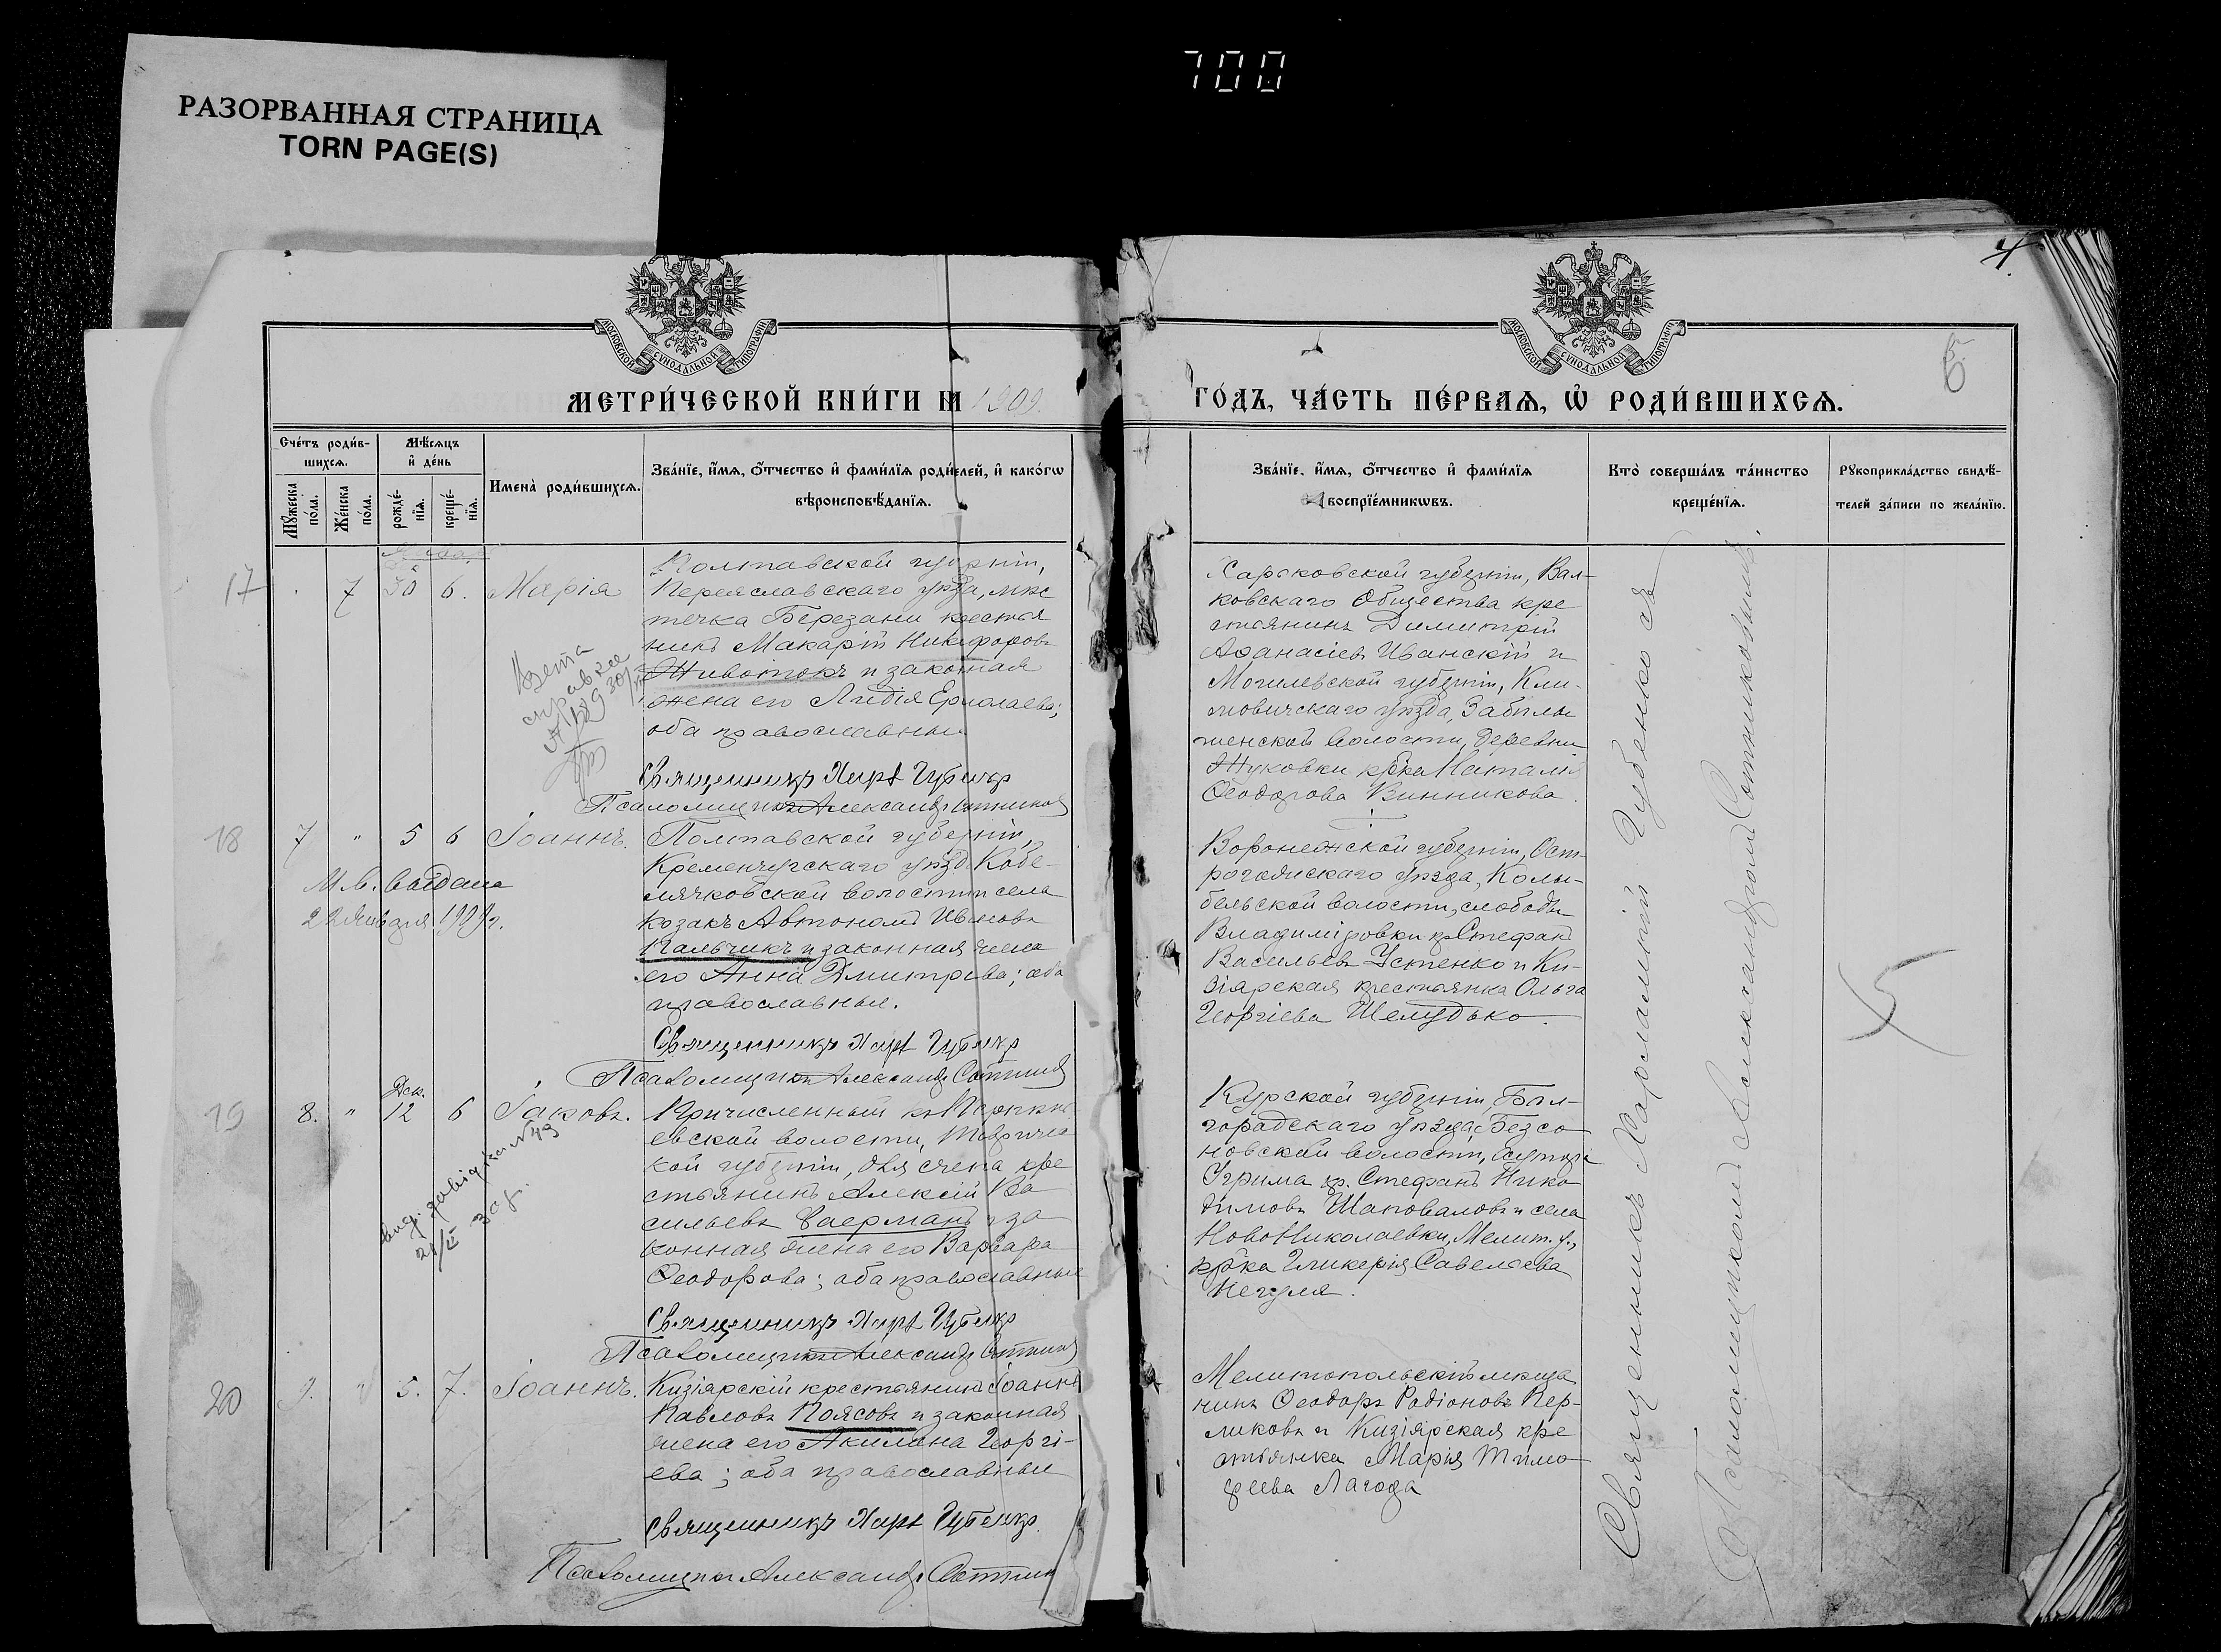 700
РАЗОРВАННАЯ СТРАНИЦА
TORN PAGE(S)
4.
6
МОСКОВСКОЙ СѴНОДАЛЬНОЙ ТИПОГРАФІИ
МОСКОВСКОЙ СѴНОДАЛЬНОЙ ТИПОГРАФІИ
МЕТРИ́ЧЕСКОЙ КНИ́ГИ НА 1909.
ГО́ДЪ, ЧА́СТЬ ПЕ́РВАѦ, Ѡ҆ РОДИ́ВШИХСѦ.
Сче́тъ роди́в-
шихсѧ.
Мѣ́сѧцъ
и҆ де́нь
Мꙋ́жеска
по́ла.
Же́нска
по́ла.
рожде́-
нїѧ.
креще́-
нїѧ.
Имена̀ роди́вшихсѧ.
Зва́нїе, и҆́мѧ, ѻ҆́тчество и҆ фами́лїѧ роди́телей, и҆ како́гѡ
вѣроисповѣ́данїѧ.
Зва́нїе, и҆́мѧ, ѻ҆́тчество и҆ фами́лїѧ
воспрїе́мникѡвъ.
Кто̀ соверша́лъ та́инство
креще́нїѧ.
Рꙋкоприкла́дство свидѣ́-
телей за́писи по жела́нїю.
17
7 30 6. Марія
Полтавской губерніи,
Переяславскаго уѣзда, мѣс
течка Березани крестья
нинъ Макарій Никифоровъ
Животокъ и законная
жена его Лидія Ермолаева;
оба православные
Взета
справка
Священникъ Харл Губенко
Псаломщикъ Александр Сотников
Харьковской губерніи, Вал-
ковскаго Общества кре
стьянинъ Димитрій
Аѳанасіевъ Иванскій и
Могилевской губерніи, Кли-
мовичскаго уѣзда, Забѣлы
шенской волости, деревни
Жуковки кр-ка Наталія
Ѳеодорова Винникова.
18 7 " 5 6 Іоаннъ.
М.в. выдана
22 Января 1909 г.
Полтавской губерніи,
Кременчугскаго уѣзд. Кобе-
лячковской волости и села
козакъ Автономъ Ивановъ
Пальчикъ и законная жена
его Анна Дмитріева; оба
православные.
Священникъ Харл Губенко
Псаломщикъ Александр Сотников
Воронежской губерніи, Ост-
рогожскаго уѣзда, Колы-
бельской волости, слободы
Владиміровки кр. Стефанъ
Васильевъ Устенко и Ки-
зіярская крестьянка Ольга
Георгіева Шелудько.
19 8. " Дек. 12 6 Іаковъ.
вид. довідка № 49
21/II 30 р.
Причисленный къ
евской волости, Тавриче
кой губерніи, для счета кре
стьянинъ Алексій Ва
сильевъ Гаерманъ и за
конная жена его Варвара
Ѳеодорова; оба православные
Священникъ Харл Губенко
Псаломщикъ Александр Сотников
Курской губерніи, Бѣл-
городскаго уѣзда, Безсо
новской волости, хутора
Угрима кр. Стефанъ Нико
димовъ Шаповаловъ и села
НовоНиколаевки, Мелит. у.,
кр-ка Гликерія Савелаева
Негуля.
20 9. " 5. 7. Іоаннъ.
Кизіярскій крестьянинъ Іоаннъ
Павловъ Поясовъ и законная
жена его Акилина Георгі-
ева; оба православные
Священникъ Харл Губенко.
Псаломщикъ Александр Сотников
Мелитопольскій мѣща
нинъ Ѳеодоръ Родіоновъ Пер-
ликовъ и Кизіярская кре
стьянка Марія Тимо
ѳеева Лагода
Священникъ Харлампій Губенко съ
Псаломщикомъ Александромъ Сотниковымъ.